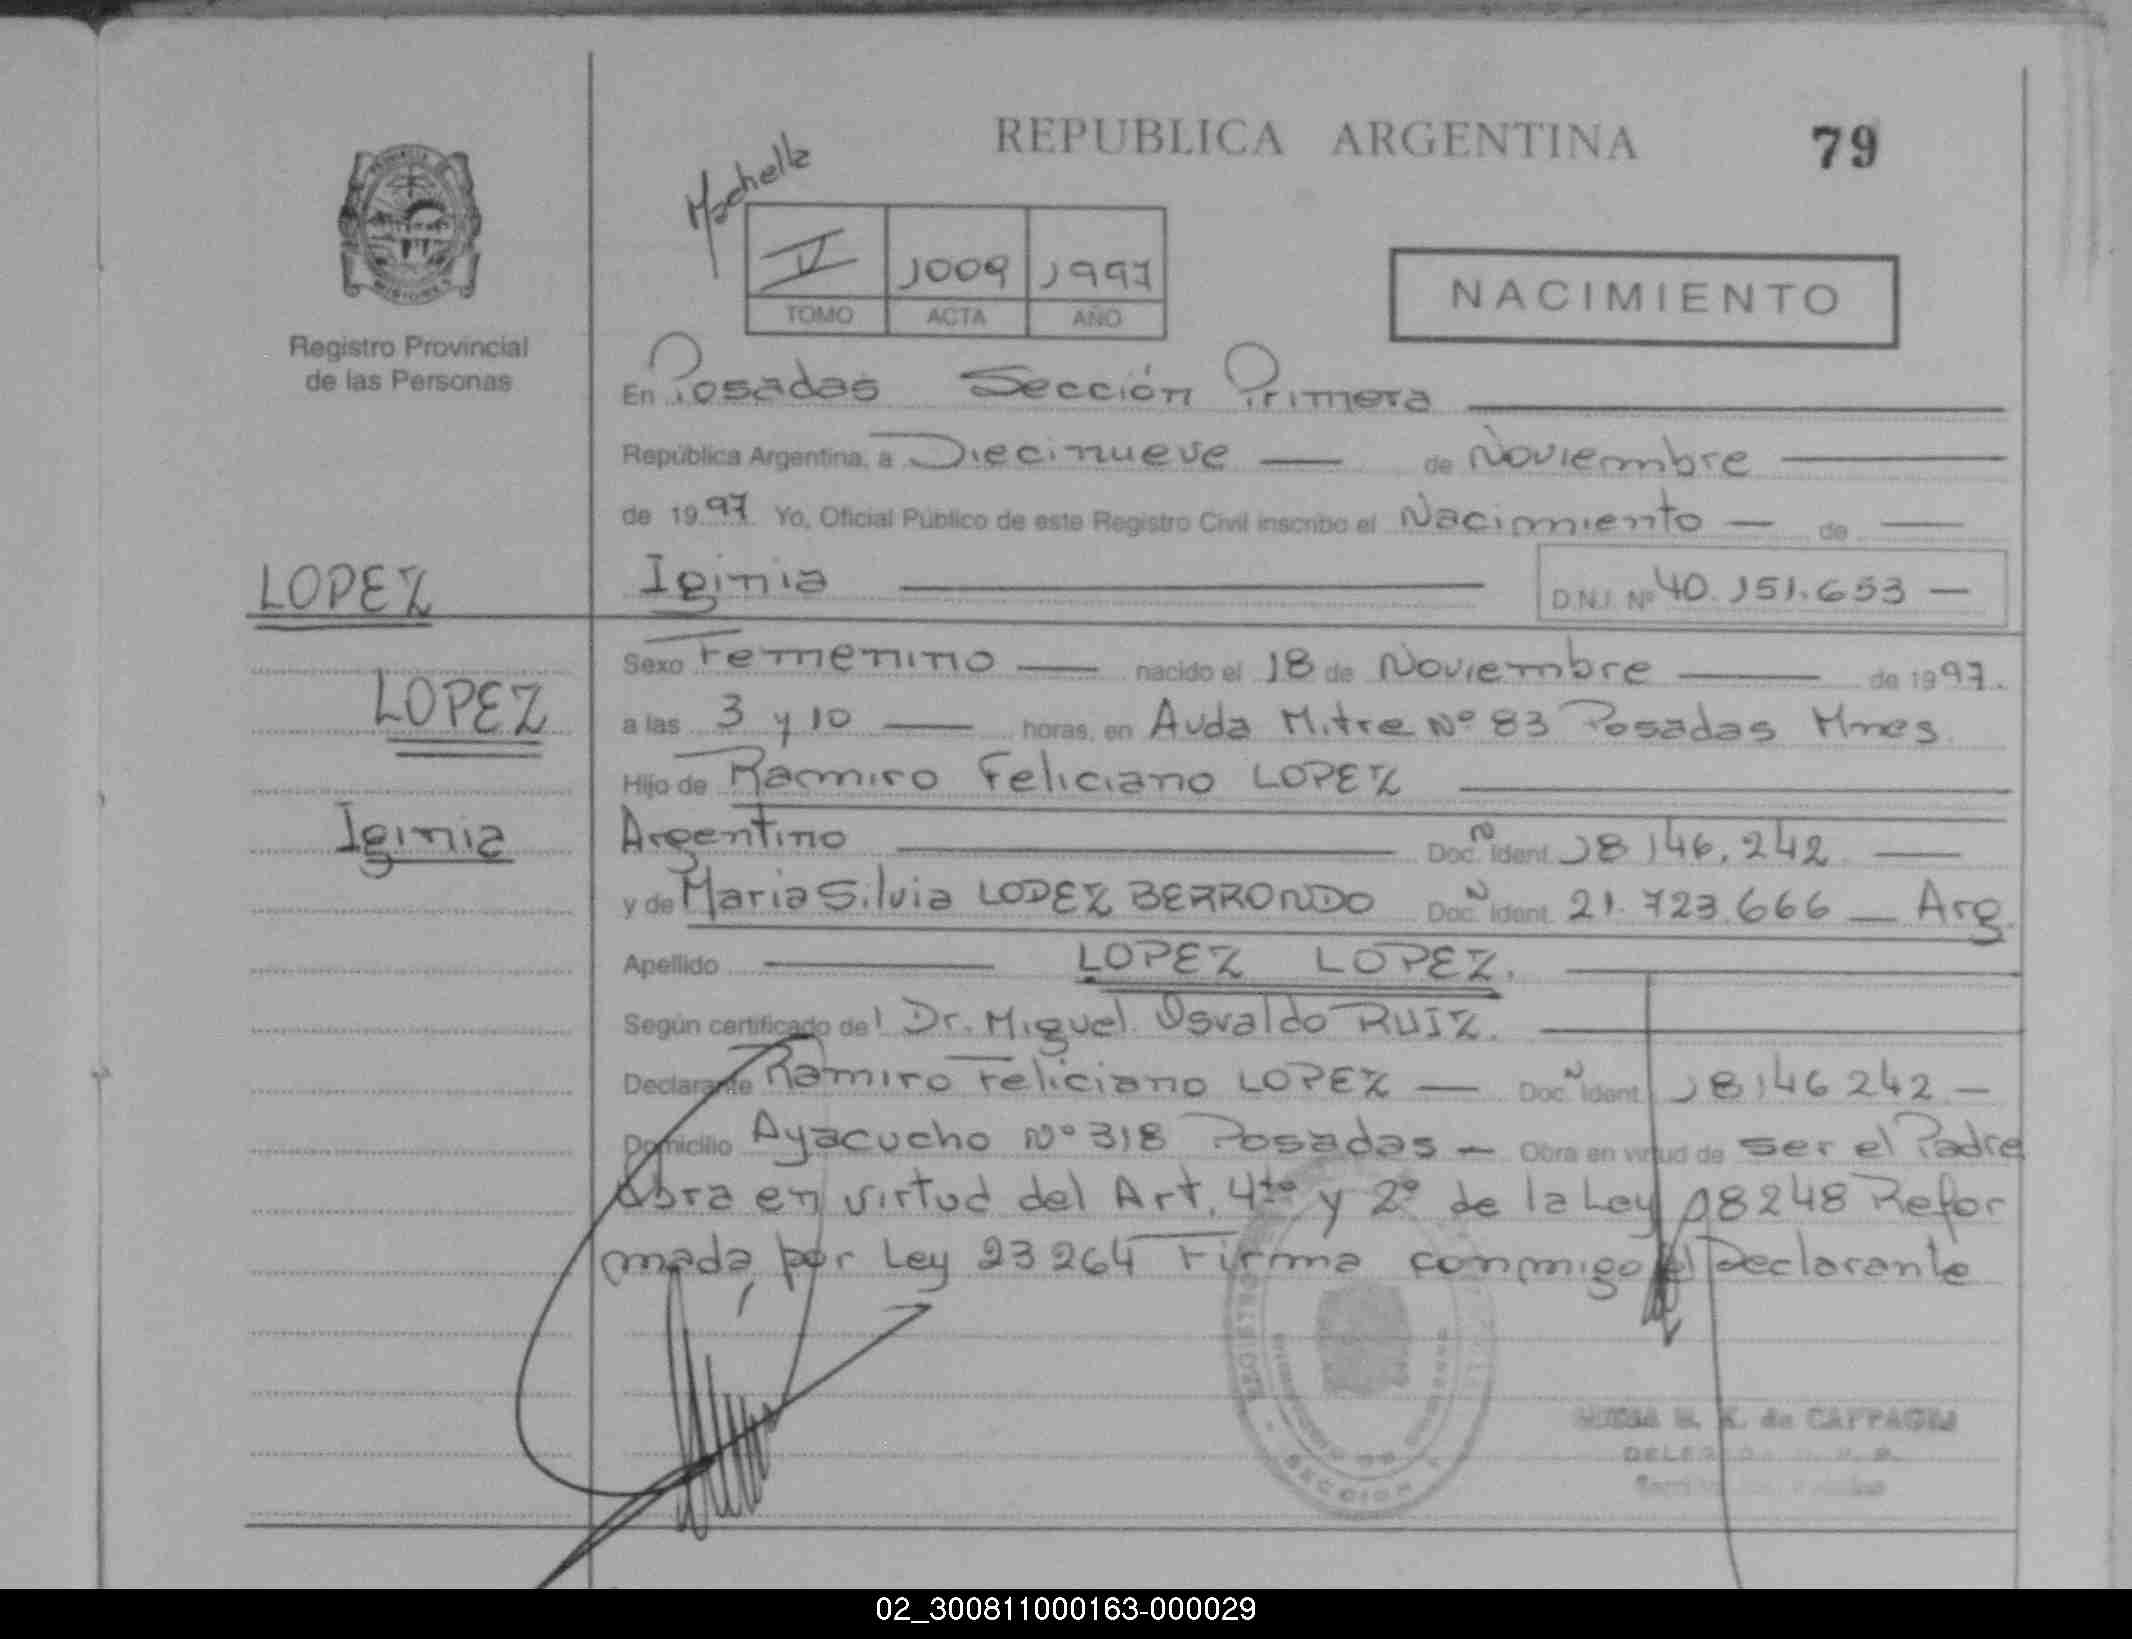 REPUBLICA ARGENTINA 79
Machella
V 1009 1997
TOMO ACTA AÑO
NACIMIENTO
MISIONES
Registro Provincial
de las Personas
En Posadas Sección Primera
República Argentina, a Diecinueve de Noviembre
de 1997 Yo, Oficial Público de este Registro Civil inscribo el Nacimiento de
LOPEZ Iginia D.N.I. Nº 40.151.653
Sexo Femenino nacido el 18 de Noviembre de 1997.
LOPEZ a las 3 y 10 horas, en Avda Mitre Nº 83 Posadas Mnes
Hijo de Ramiro Feliciano LOPEZ
Iginia Argentino Doc. N Ident. 18146.242
y de Maria Silvia LOPEZ BERRONDO Doc. N Ident. 21.723.666 Arg.
Apellido LOPEZ LOPEZ.
Según certificado del Dr. Miguel Osvaldo RUIZ.
Declarante Ramiro Feliciano LOPEZ Doc. N Ident. 18146242
Domicilio Ayacucho Nº 318 Posadas Obra en virtud de ser el Padre
Obra en virtud del Art. 4to y 2º de la Ley 18248 Refor
mada por Ley 23264 Firma conmigo el Declarante
REGISTRO
SECCION
de CAPPAGLI
02_300811000163-000029